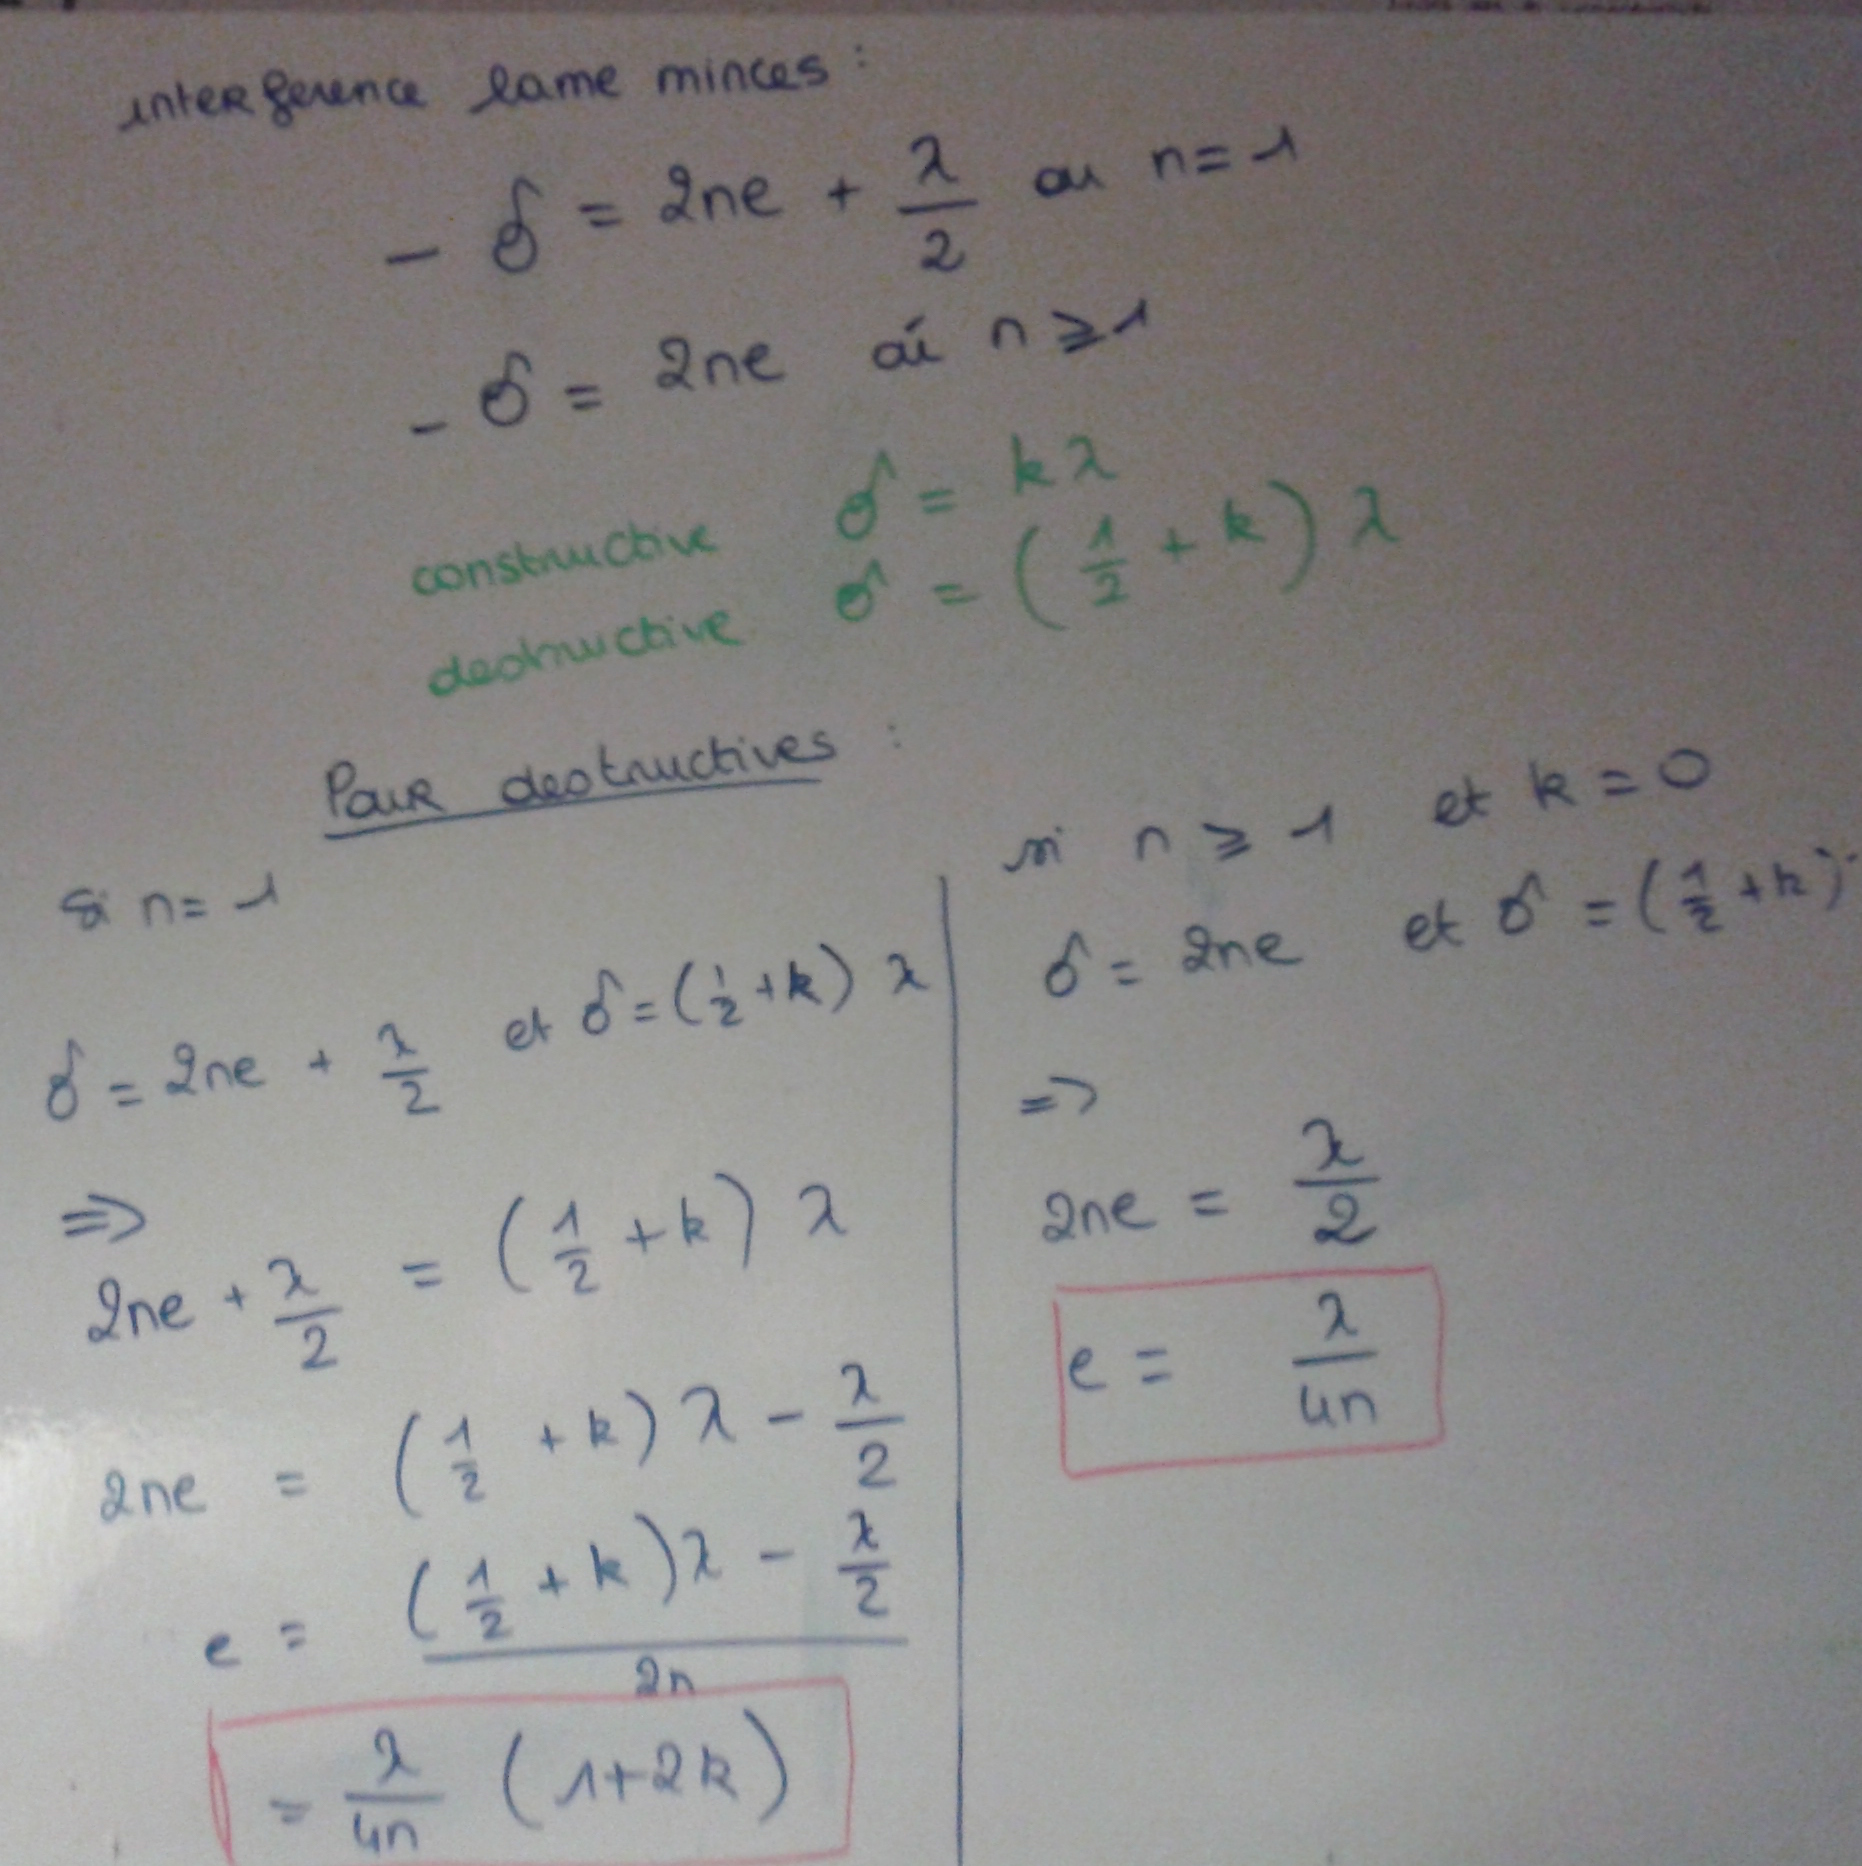 interference lame minces :
- δ = 2ne + λ/2 ou n = 1
- δ = 2ne où n ⩾ 1
constructive δ = kλ
destructive δ = (1/2 + k) λ
Pour destructives :
Si n = 1
δ = 2ne + λ/2 et δ = (1/2 + k) λ
=>
2ne + λ/2 = (1/2 + k) λ
2ne = (1/2 + k) λ - λ/2
e = ((1/2 + k) λ - λ/2) / 2n
= λ/4n (1 + 2k)
si n ⩾ 1 et k = 0
δ = 2ne et δ = (1/2 + k)
=>
2ne = λ/2
e = λ/4n